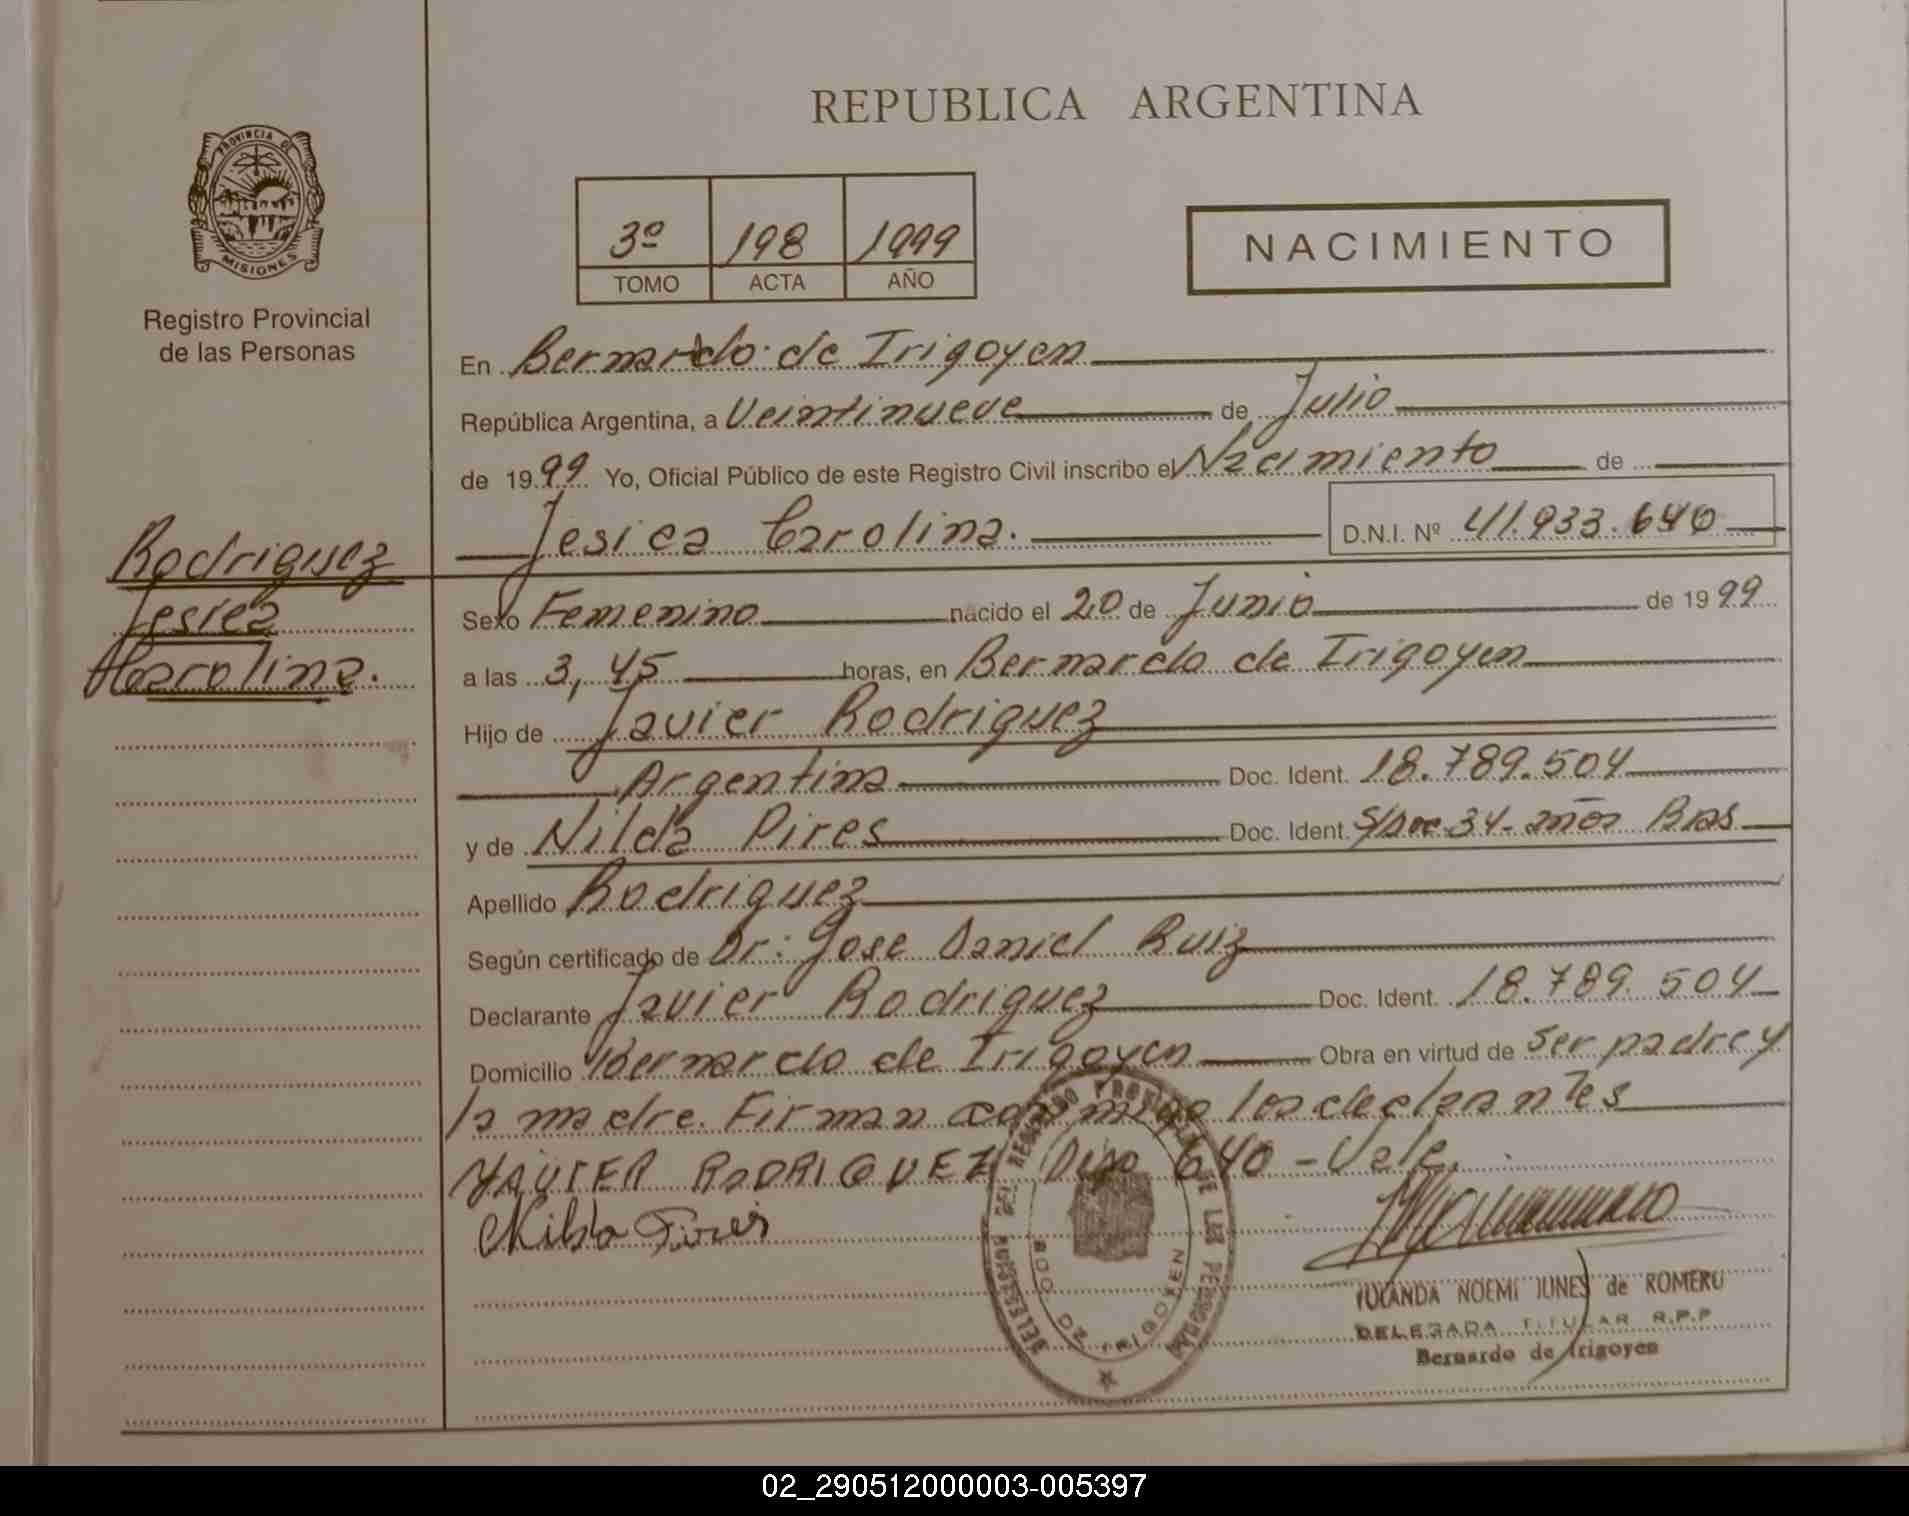 REPUBLICA ARGENTINA
PROVINCIA D
MISIONES
Registro Provincial
de las Personas
3º 198 1999
TOMO ACTA AÑO
NACIMIENTO
En Bernardo de Irigoyen
República Argentina, a Veintinueve de Julio
de 1999 Yo, Oficial Público de este Registro Civil inscribo el Nacimiento de
Jesica Carolina. D.N.I. Nº 41.933.640
Rodriguez
Jesica
Carolina.
Sexo Femenino nacido el 20 de Junio de 1999
a las 3,45 horas, en Bernardo de Irigoyen
Hijo de Javier Rodriguez
Argentina Doc. Ident. 18.789.504
y de Nilda Pires Doc. Ident. S/Doc 34- años Bras
Apellido Rodriguez
Según certificado de Dr: Jose Daniel Ruiz
Declarante Javier Rodriguez Doc. Ident. 18.789.504
Domicilio Bernardo de Irigoyen Obra en virtud de Ser padre y
la madre. Firman conmigo los declarantes
JAVIER RODRIGUEZ Digo 640 - Vale.
Nilda Pires
YOLANDA NOEMI JUNES de ROMERO
DELEGADA TITULAR R.P.P
Bernardo de Irigoyen
DEL REGISTRO PROVINCIAL DE LAS PERSONAS
BDO DE IRIGOYEN
02_290512000003-005397